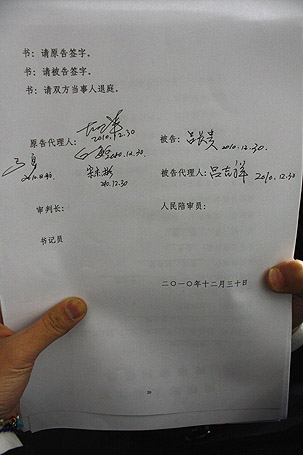 书：请原告签字。
书：请被告签字。
书：请双方当事人退庭。
2010.12.30
原告代理人： 2010.12.30. 被告： 吕长贵 2010.12.30.
2010.12.30
被告代理人： 吕吉祥 2010.12.30
审判长： 人民陪审员：
书记员
二〇一〇年十二月三十日